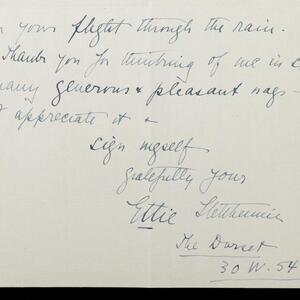 yours flight through the rain.
Thanks you for thinking of me in
many generous & pleasant ways -
appreciate it &
sign myself
gratefully yours
Ettie Stettheimer
The Dorset
30 W. 54